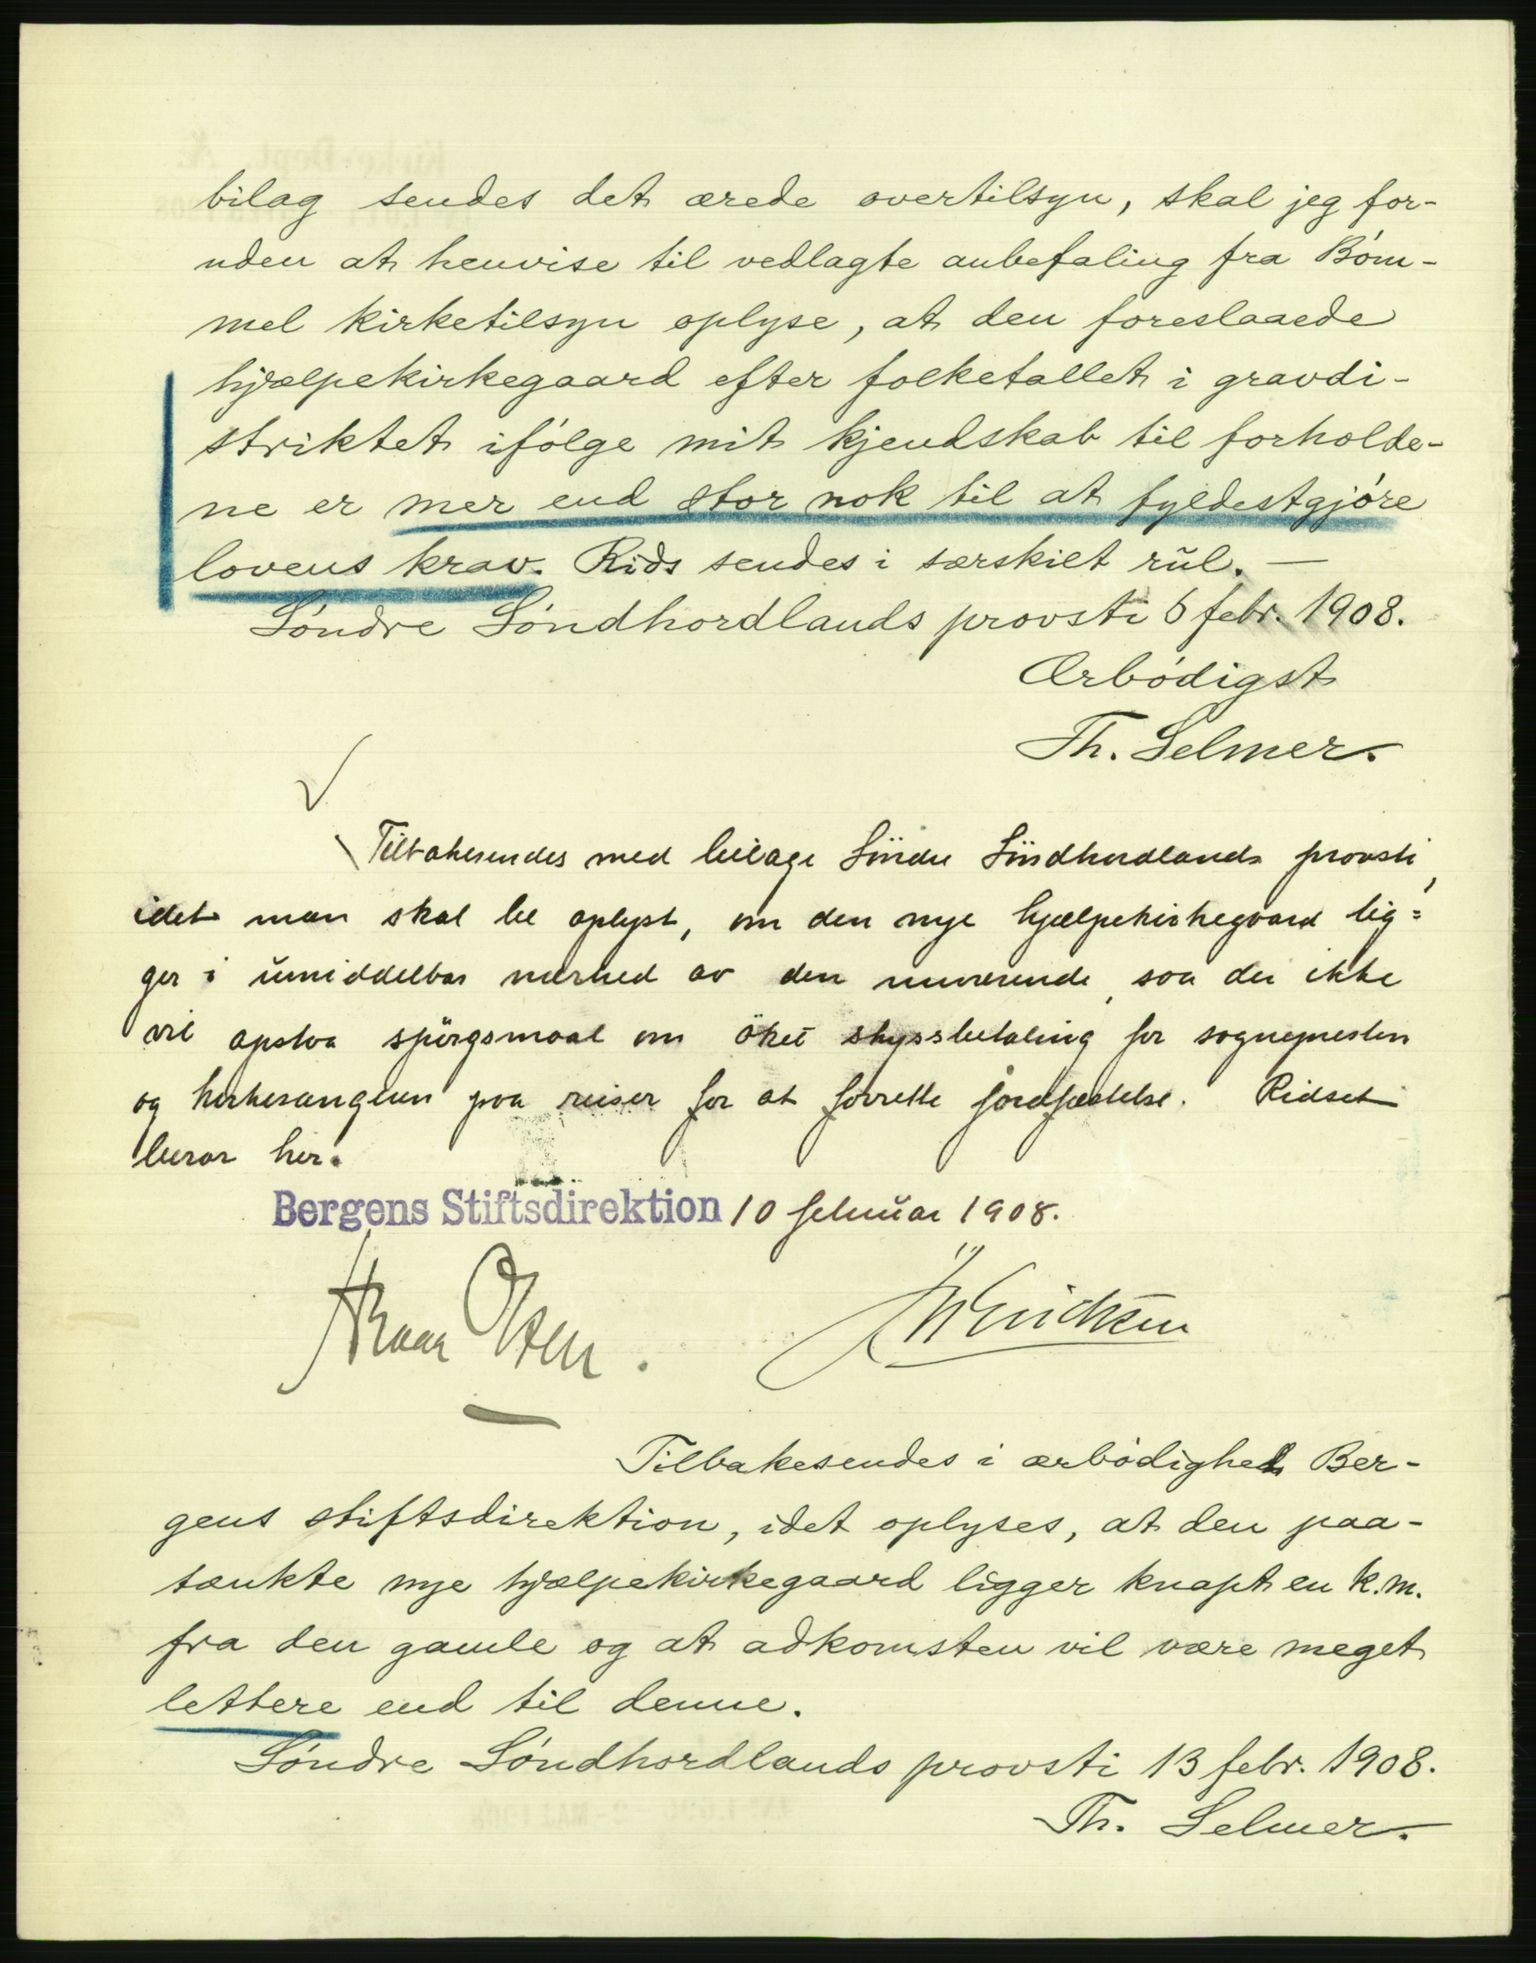 bilag sendes det ærede overtilsyn, skal jeg for-
uden at henvise til vedlagte anbefaling fra Bøm-
mel kirketilsyn oplyse, at den foreslaaede
hjælpekirkegaard efter folketallet i gravdi-
striktet ifølge mit kjendskab til forholde-
ne er mer end stor nok til at fyldestgjøre
lovens krav. Rids sendes i særskilt rul. —
Søndre Søndhordlands provsti 6 febr. 1908.
Ærbødigst
Th. Selmer.
Tilbakesendes med bilage Søndre Søndhordlands provsti,
idet man skal be oplyst, om den nye hjælpekirkegaard lig=
ger i umiddelbar nærhed av den nuværende, saa der ikke
vil opstaa spørgsmaal om øket skyssbetaling for sognepresten
og kirkesangeren paa reiser for at forrette jordfæstelse. Ridset
beror her.
Bergens Stiftsdirektion 10 februar 1908.
Olsen. Erichsen
Tilbakesendes i ærbødighed Ber-
gens stiftsdirektion, idet oplyses, at den paa-
tænkte nye hjælpekirkegaard ligger knapt en k.m.
fra den gamle og at adkomsten vil være meget
lettere end til denne.
Søndre Søndhordlands provsti 13 febr. 1908.
Th. Selmer.